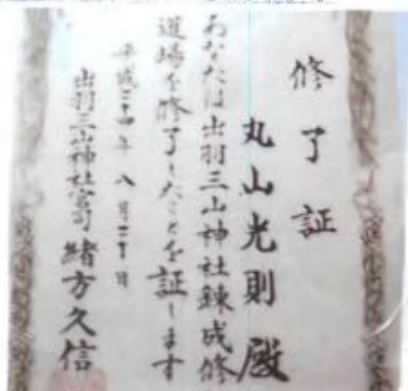 修了証
丸山光則殿
あなたは出羽三山神社錬成修
道場を修了したことを証します
平成二十四年八月三十日
出羽三山神社宮司 緒方久信